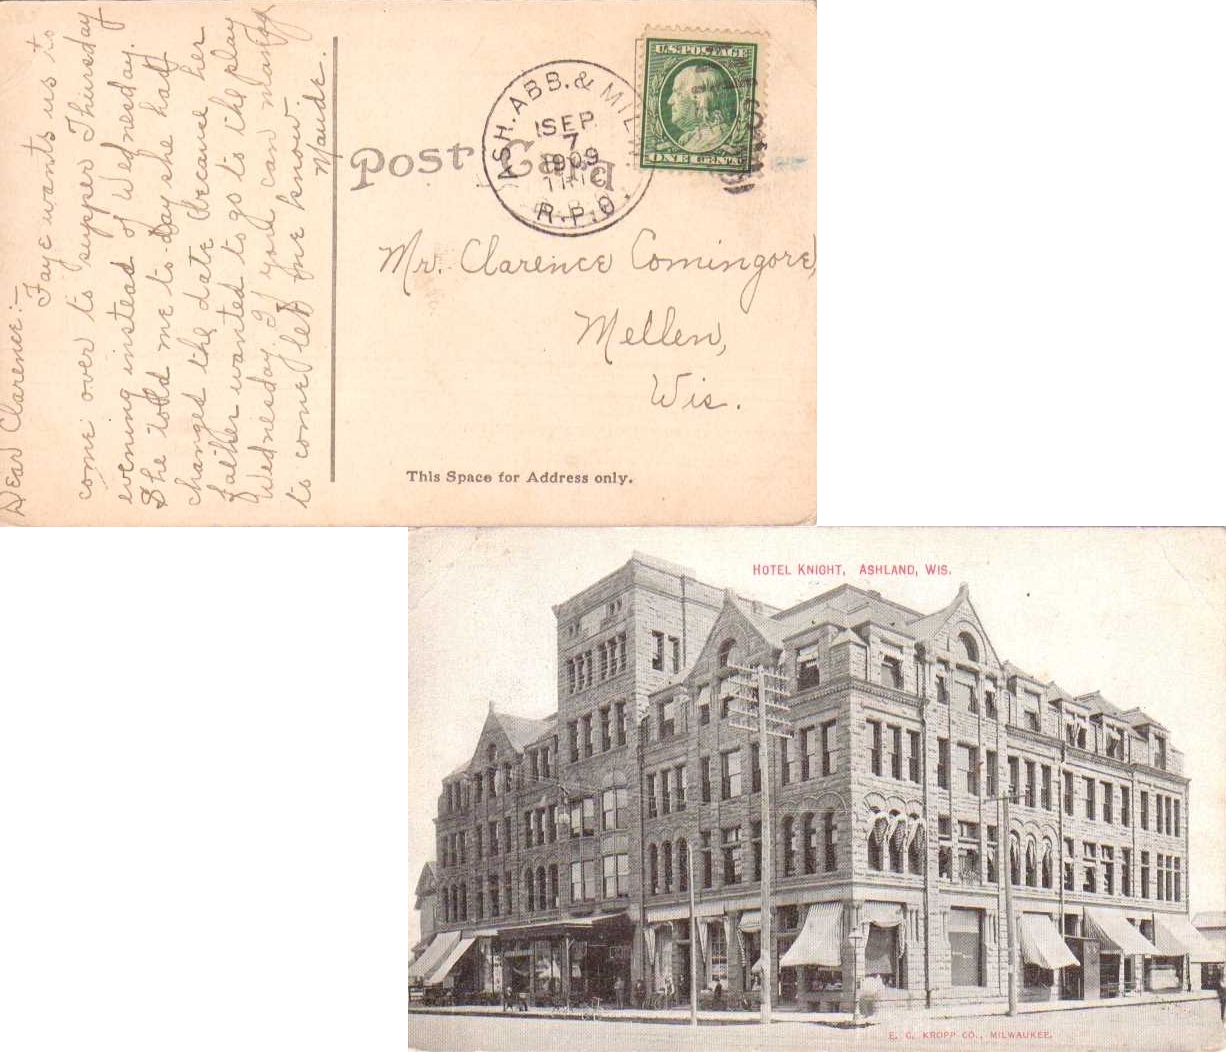 Dear Clarence:-
Faye wants us to
come over to supper Thursday
evening instead of Wednesday.
She told me to-day she had
changed the date because her
father wanted to go to the play
Wednesday. If you can manag
to come let me know.
Maude.
Post Card
ASH. ABB. & MIL
SEP
7
1909
R.P.O.
U.S. POSTAGE
ONE CENT
Mr. Clarence Comingore,
Mellen,
Wis.
This Space for Address only.
HOTEL KNIGHT, ASHLAND, WIS.
E. C. KROPP CO., MILWAUKEE.